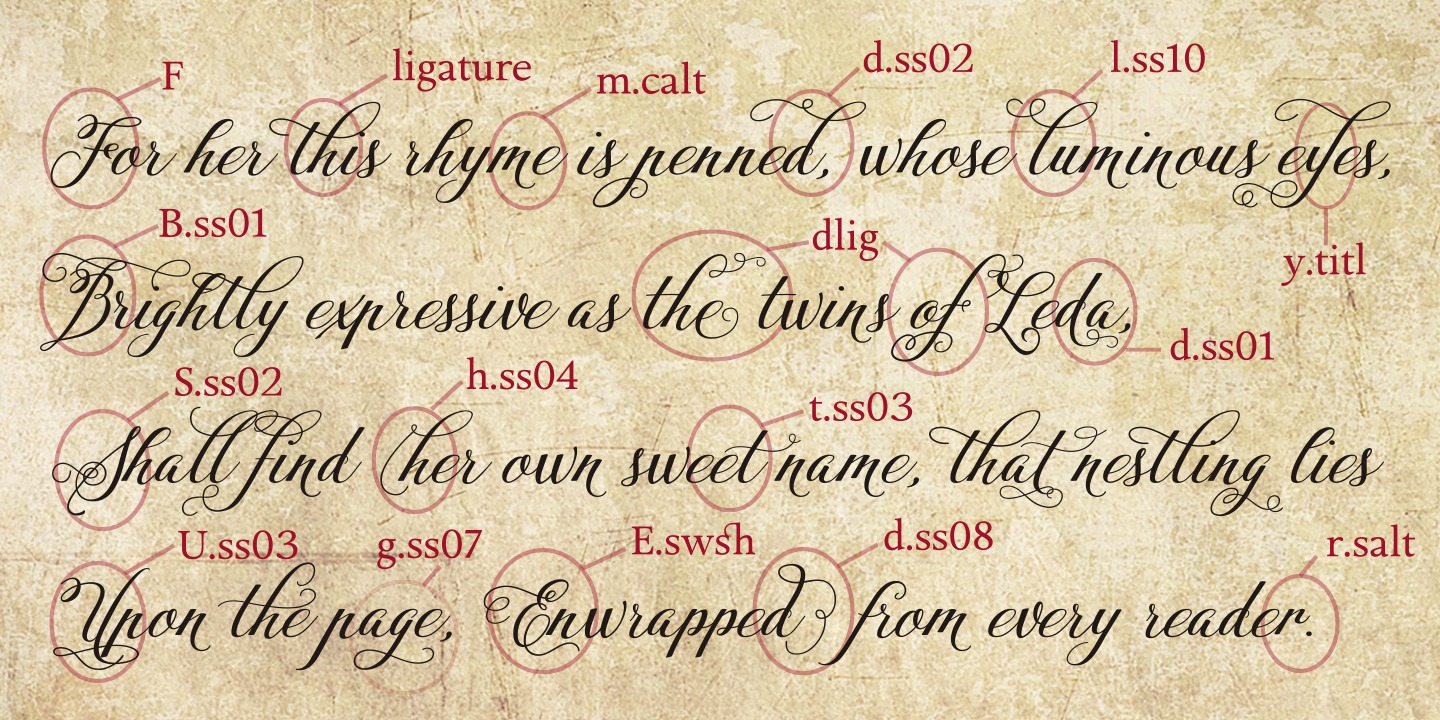 F ligature m.calt d.ss02 l.ss10
For her this rhyme is penned, whose luminous eyes,
B.ss01 dlig y.titl
Brightly expressive as the twins of Leda,
d.ss01
S.ss02 h.ss04 t.ss03
Shall find her own sweet name, that nestling lies
U.ss03 g.ss07 E.swsh d.ss08 r.salt
Upon the page, Enwrapped from every reader.